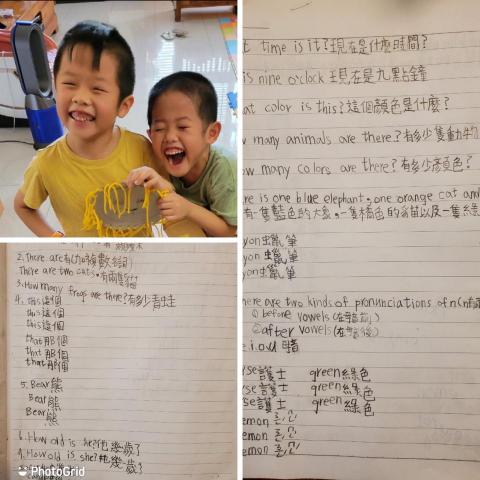 t time is it?現在是什麼時間?
is nine o'clock 現在是九點鐘
at color is this?這個顏色是什麼?
w many animals are there?有多少隻動物
ow many colors are there?有多少顏色?
re is one blue elephant, one orange cat and
有一隻藍色的大象,一隻橘色的貓以及一隻綠
yon蠟筆
yon蠟筆
yon蠟筆
here are two kinds of pronunciations of n(n有
①before vowels(在
②after vowels(在
e.i.o.u
rse護士 green綠色
se護士 green綠色
se護士 green綠色
emon
emon
emon
2.There are有(加複數名詞)
There are two cats.有兩隻貓
3.How many frogs are there?有多少青蛙
4.this這個
this這個
this這個
that那個
that那個
that那個
5.Bear熊
Bear熊
Bear熊
6.How old is he?他幾歲了
7.How old is she?她幾歲?
PhotoGrid